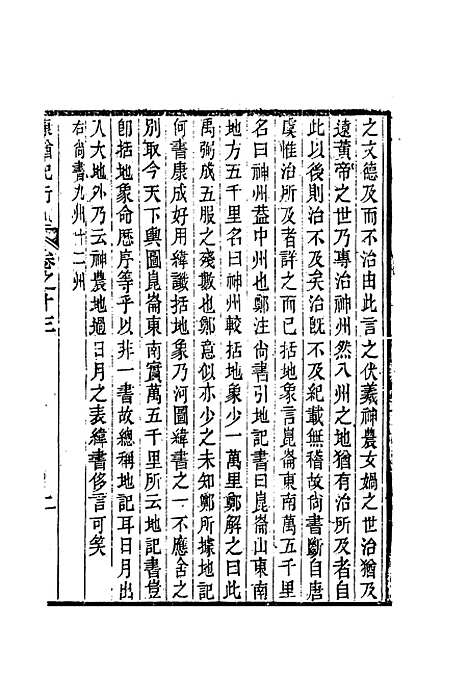 之文德及而不治由此言之伏羲神農女媧之世治猶及
遠黃帝之世乃專治神州然八州之地猶有治所及者自
此以後則治不及矣治既不及紀載無稽故尚書斷自唐
虞惟治所及者詳之而已括地象言崑崙東南萬五千里
名曰神州葢中州也鄭注尚書引地記書曰崑崙山東南
地方五千里名曰神州較括地象少一萬里鄭解之曰此
禹弼成五服之殘數也鄭意似亦少之未知鄭所據地記
何書康成好用緯讖括地象乃河圖緯書之一不應舍之
別取今天下輿圖崑崙東南實萬五千里所云地記書豈
卽括地象命厯序等乎以非一書故總稱地記耳日月出
入大地外乃云神農地過日月之表緯書侈言可笑
右尚書九州十二州
康輶紀行 卷之十三 二